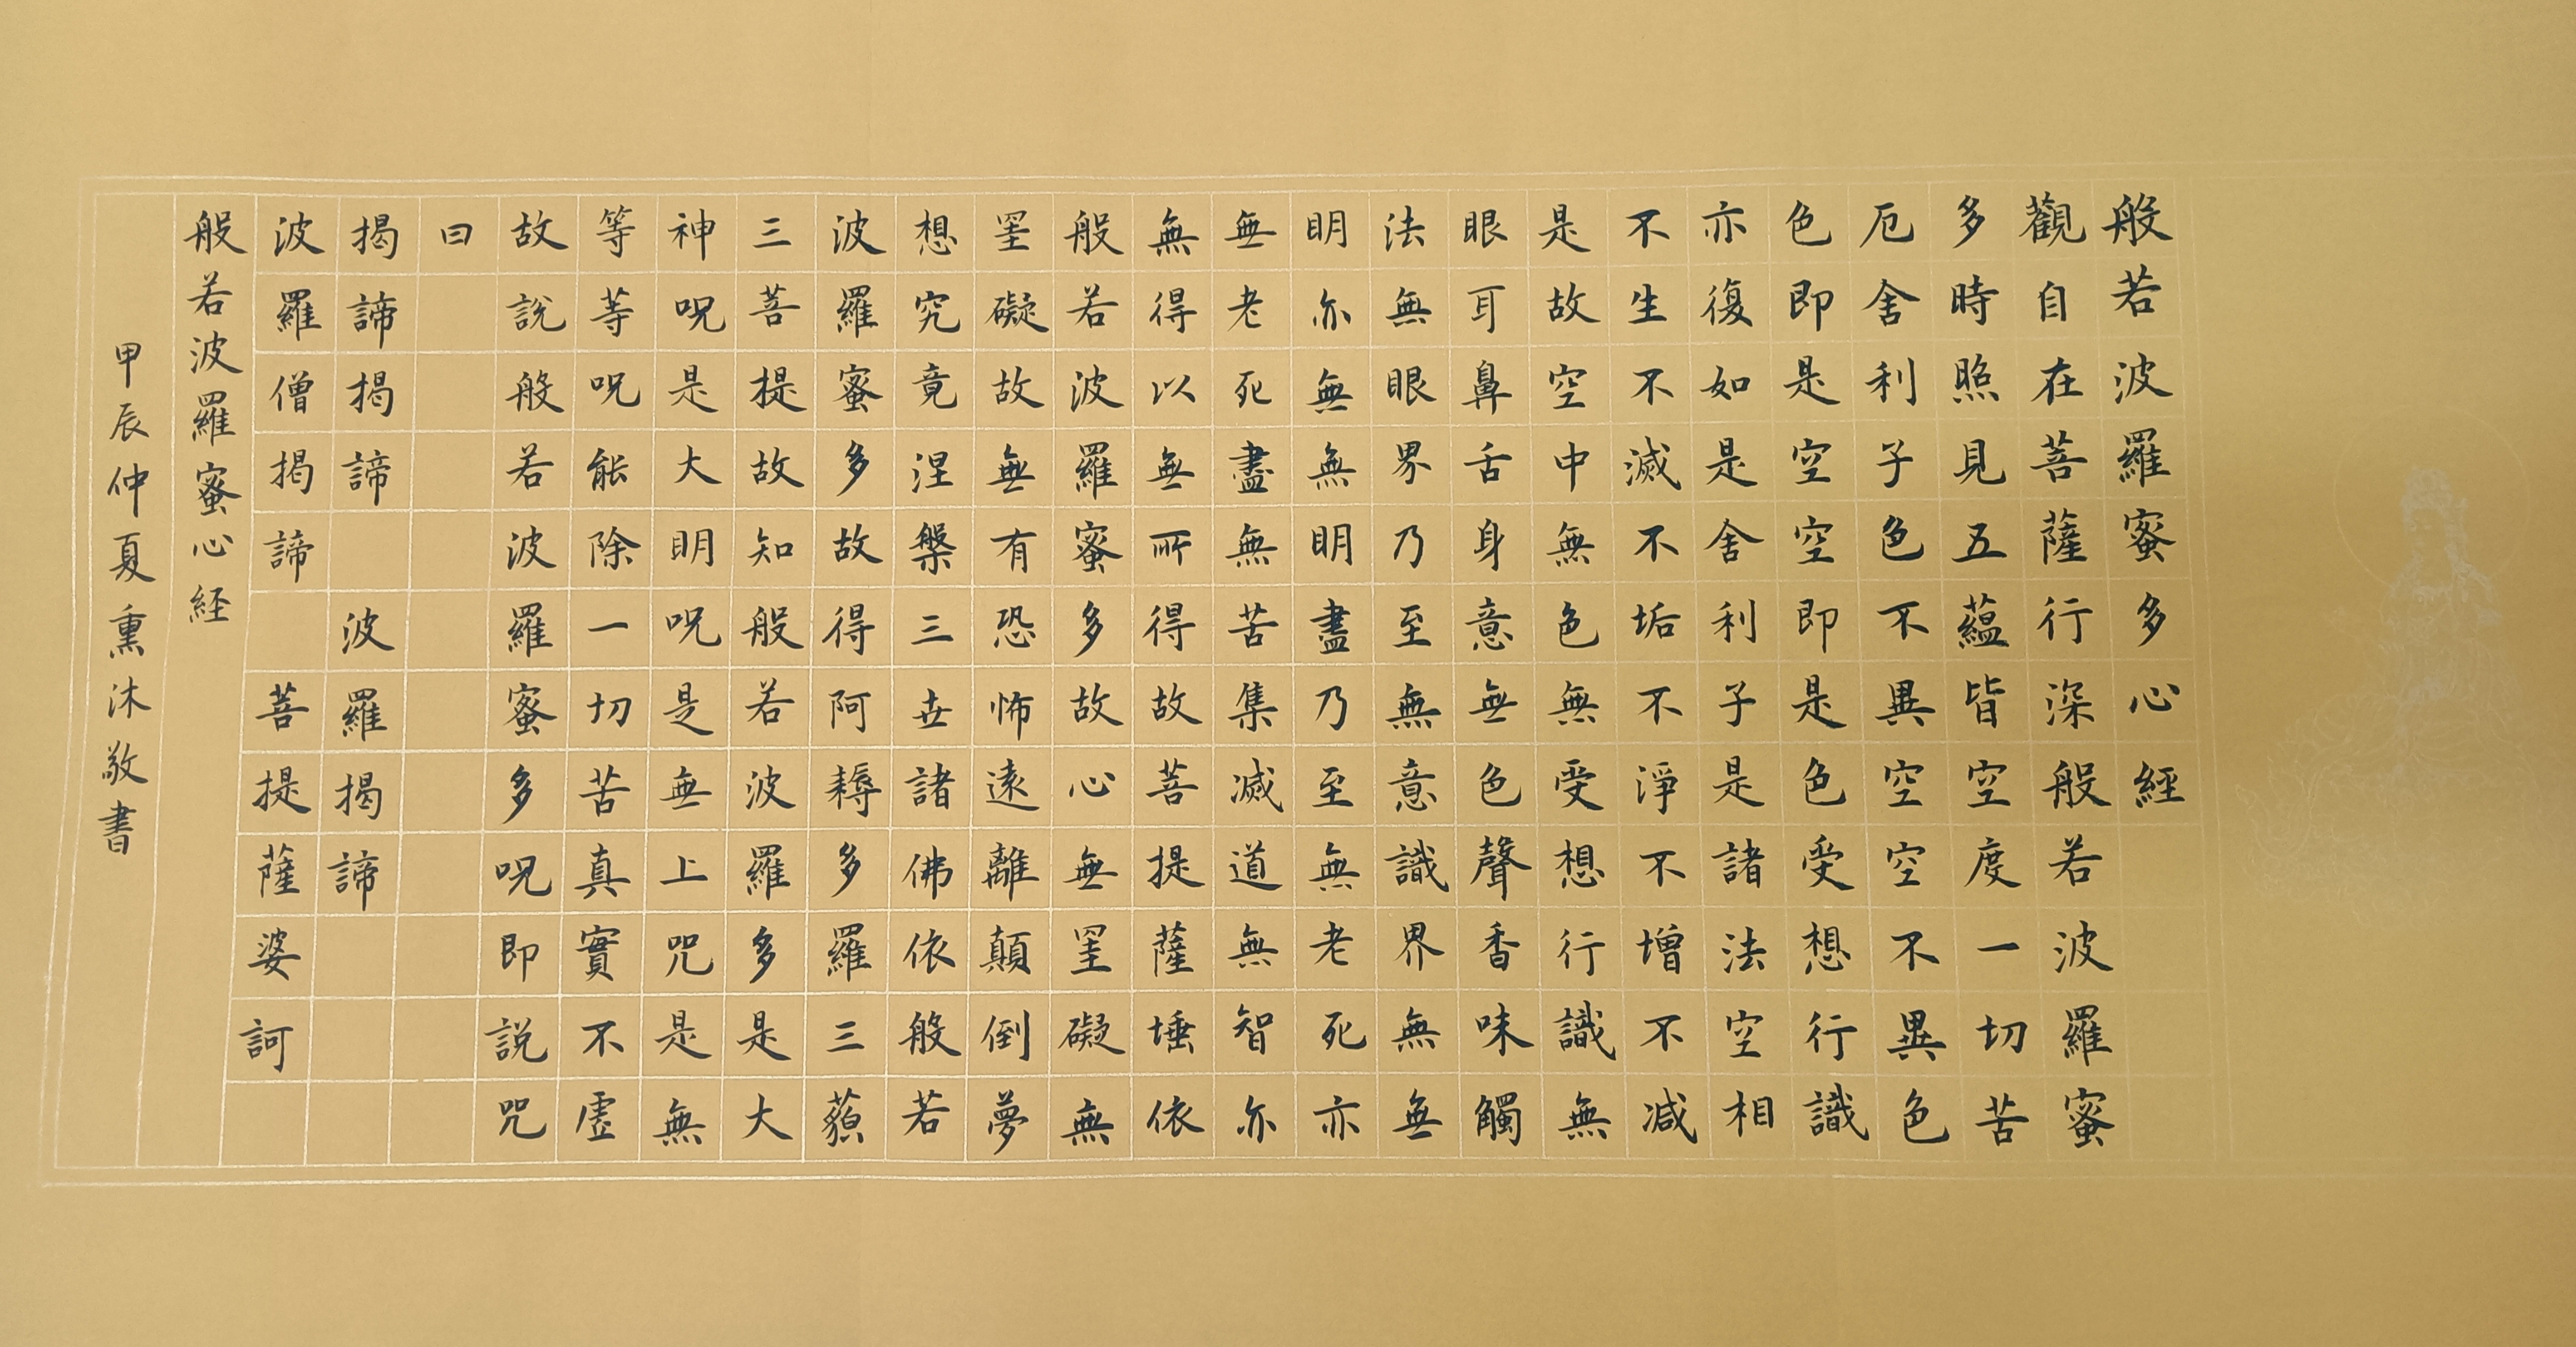 般若波羅蜜多心經
觀自在菩薩行深般若波羅蜜
多時照見五蘊皆空度一切苦
厄舍利子色不異空空不異色
色即是空空即是色受想行識
亦復如是舍利子是諸法空相
不生不滅不垢不淨不增不減
是故空中無色無受想行識無
眼耳鼻舌身意無色聲香味觸
法無眼界乃至無意識界無無
明亦無無明盡乃至無老死亦
無老死盡無苦集滅道無智亦
無得以無所得故菩提薩埵依
般若波羅蜜多故心無罣礙無
罣礙故無有恐怖遠離顛倒夢
想究竟涅槃三世諸佛依般若
波羅蜜多故得阿耨多羅三藐
三菩提故知般若波羅多是大
神呪是大明呪是無上咒是無
等等呪能除一切苦真實不虛
故說般若波羅蜜多呪即説咒
曰
揭諦揭諦 波羅揭諦
波羅僧揭諦 菩提薩婆訶
般若波羅蜜心経
甲辰仲夏熏沐敬書